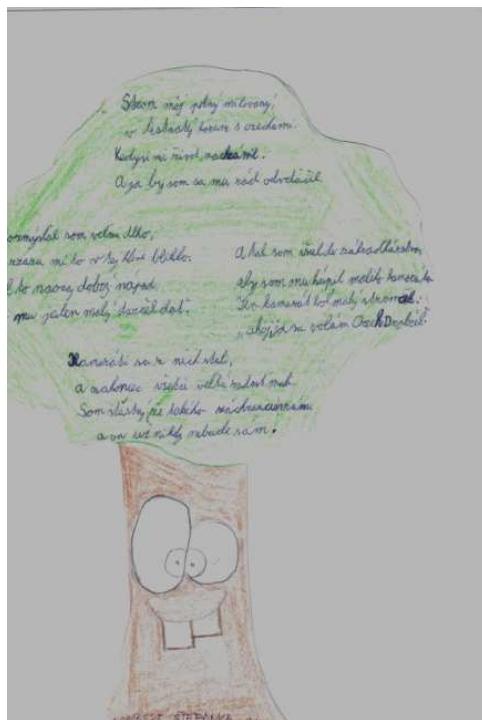 Strom môj pekný milovaný,
v korune s orechami.
Kedysi mi život zachránil.
A ja by som sa mu rád odvďačil
rozmýšľal som veľmi dlho,
mi to v tej hlave bliklo.
to naozaj dobrý nápad
mu jeden malý darček dať.
A tak som išiel do záhradníctva
aby som mu kúpil malého kamaráta
Ten kamarát bol malý stromček.
"ahoj ja sa volám
Kamaráti sa z nich stali,
a nakoniec všetci veľkú radosť mali.
Som šťastný že takého mám
a on už nikdy nebude sám.